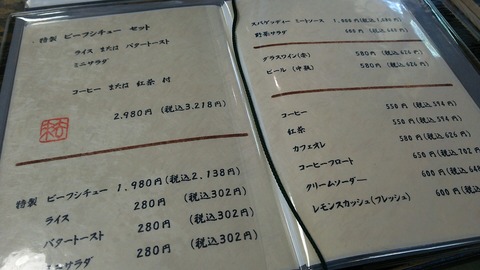 特製 ビーフシチュー セット
ライス または バタートースト
ミニサラダ
コーヒー または 紅茶 付
2.980円 (税込3.218円)
特製 ビーフシチュー 1.980円(税込2.138円)
ライス 280円 (税込302円)
バタートースト 280円 (税込302円)
ミニサラダ 280円 (税込302円)
スパゲッティー ミートソース 1.000円(税込
野菜サラダ 600円
グラスワイン(赤) 580円(税込626円)
ビール (中瓶) 580円(税込626円)
コーヒー 550円 (税込594円)
紅茶 550円 (税込594円)
カフェオレ 580円 (税込626円)
コーヒーフロート 650円(税込702円
クリームソーダー 600円 (税込
レモンスカッシュ(フレッシュ) 600円 (税込